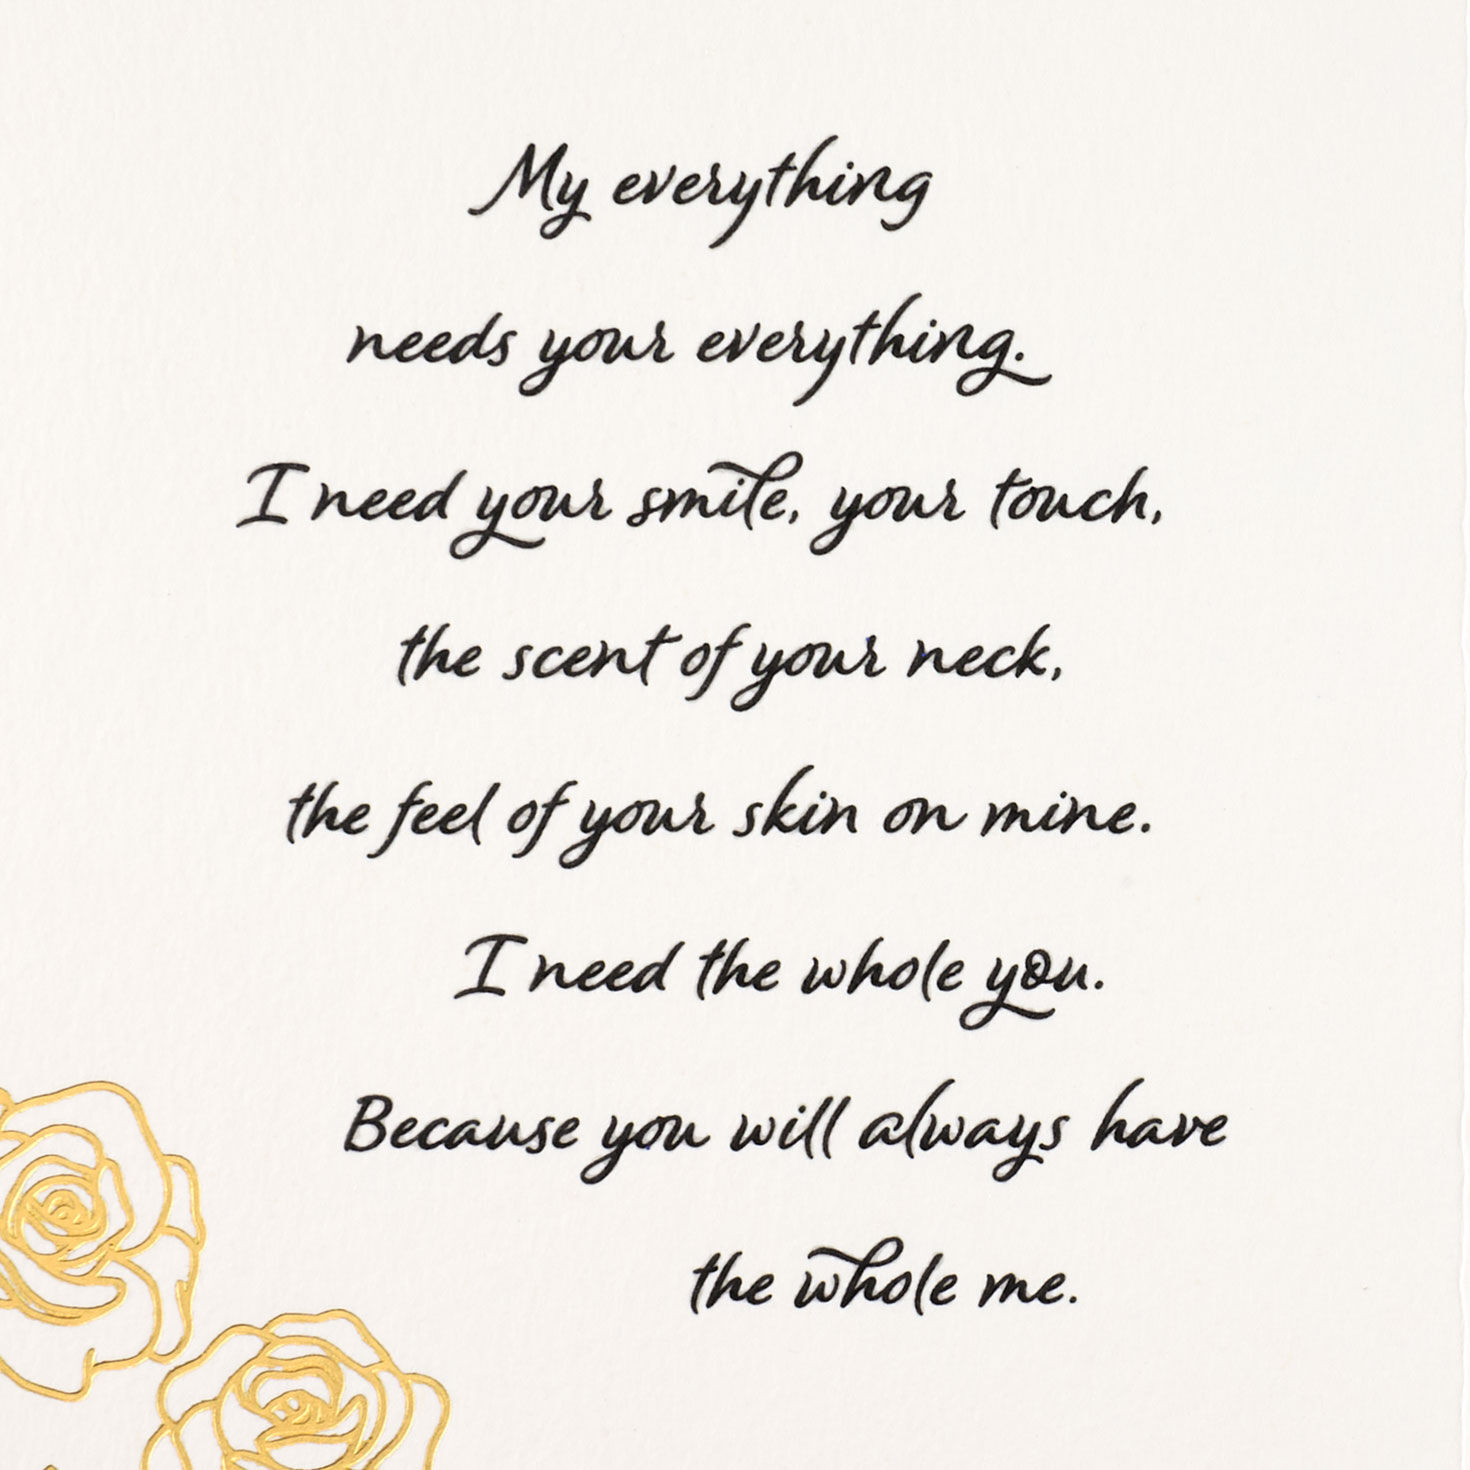 My everything
needs your everything.
I need your smile, your touch,
the scent of your neck,
the feel of your skin on mine.
I need the whole you.
Because you will always have
the whole me.